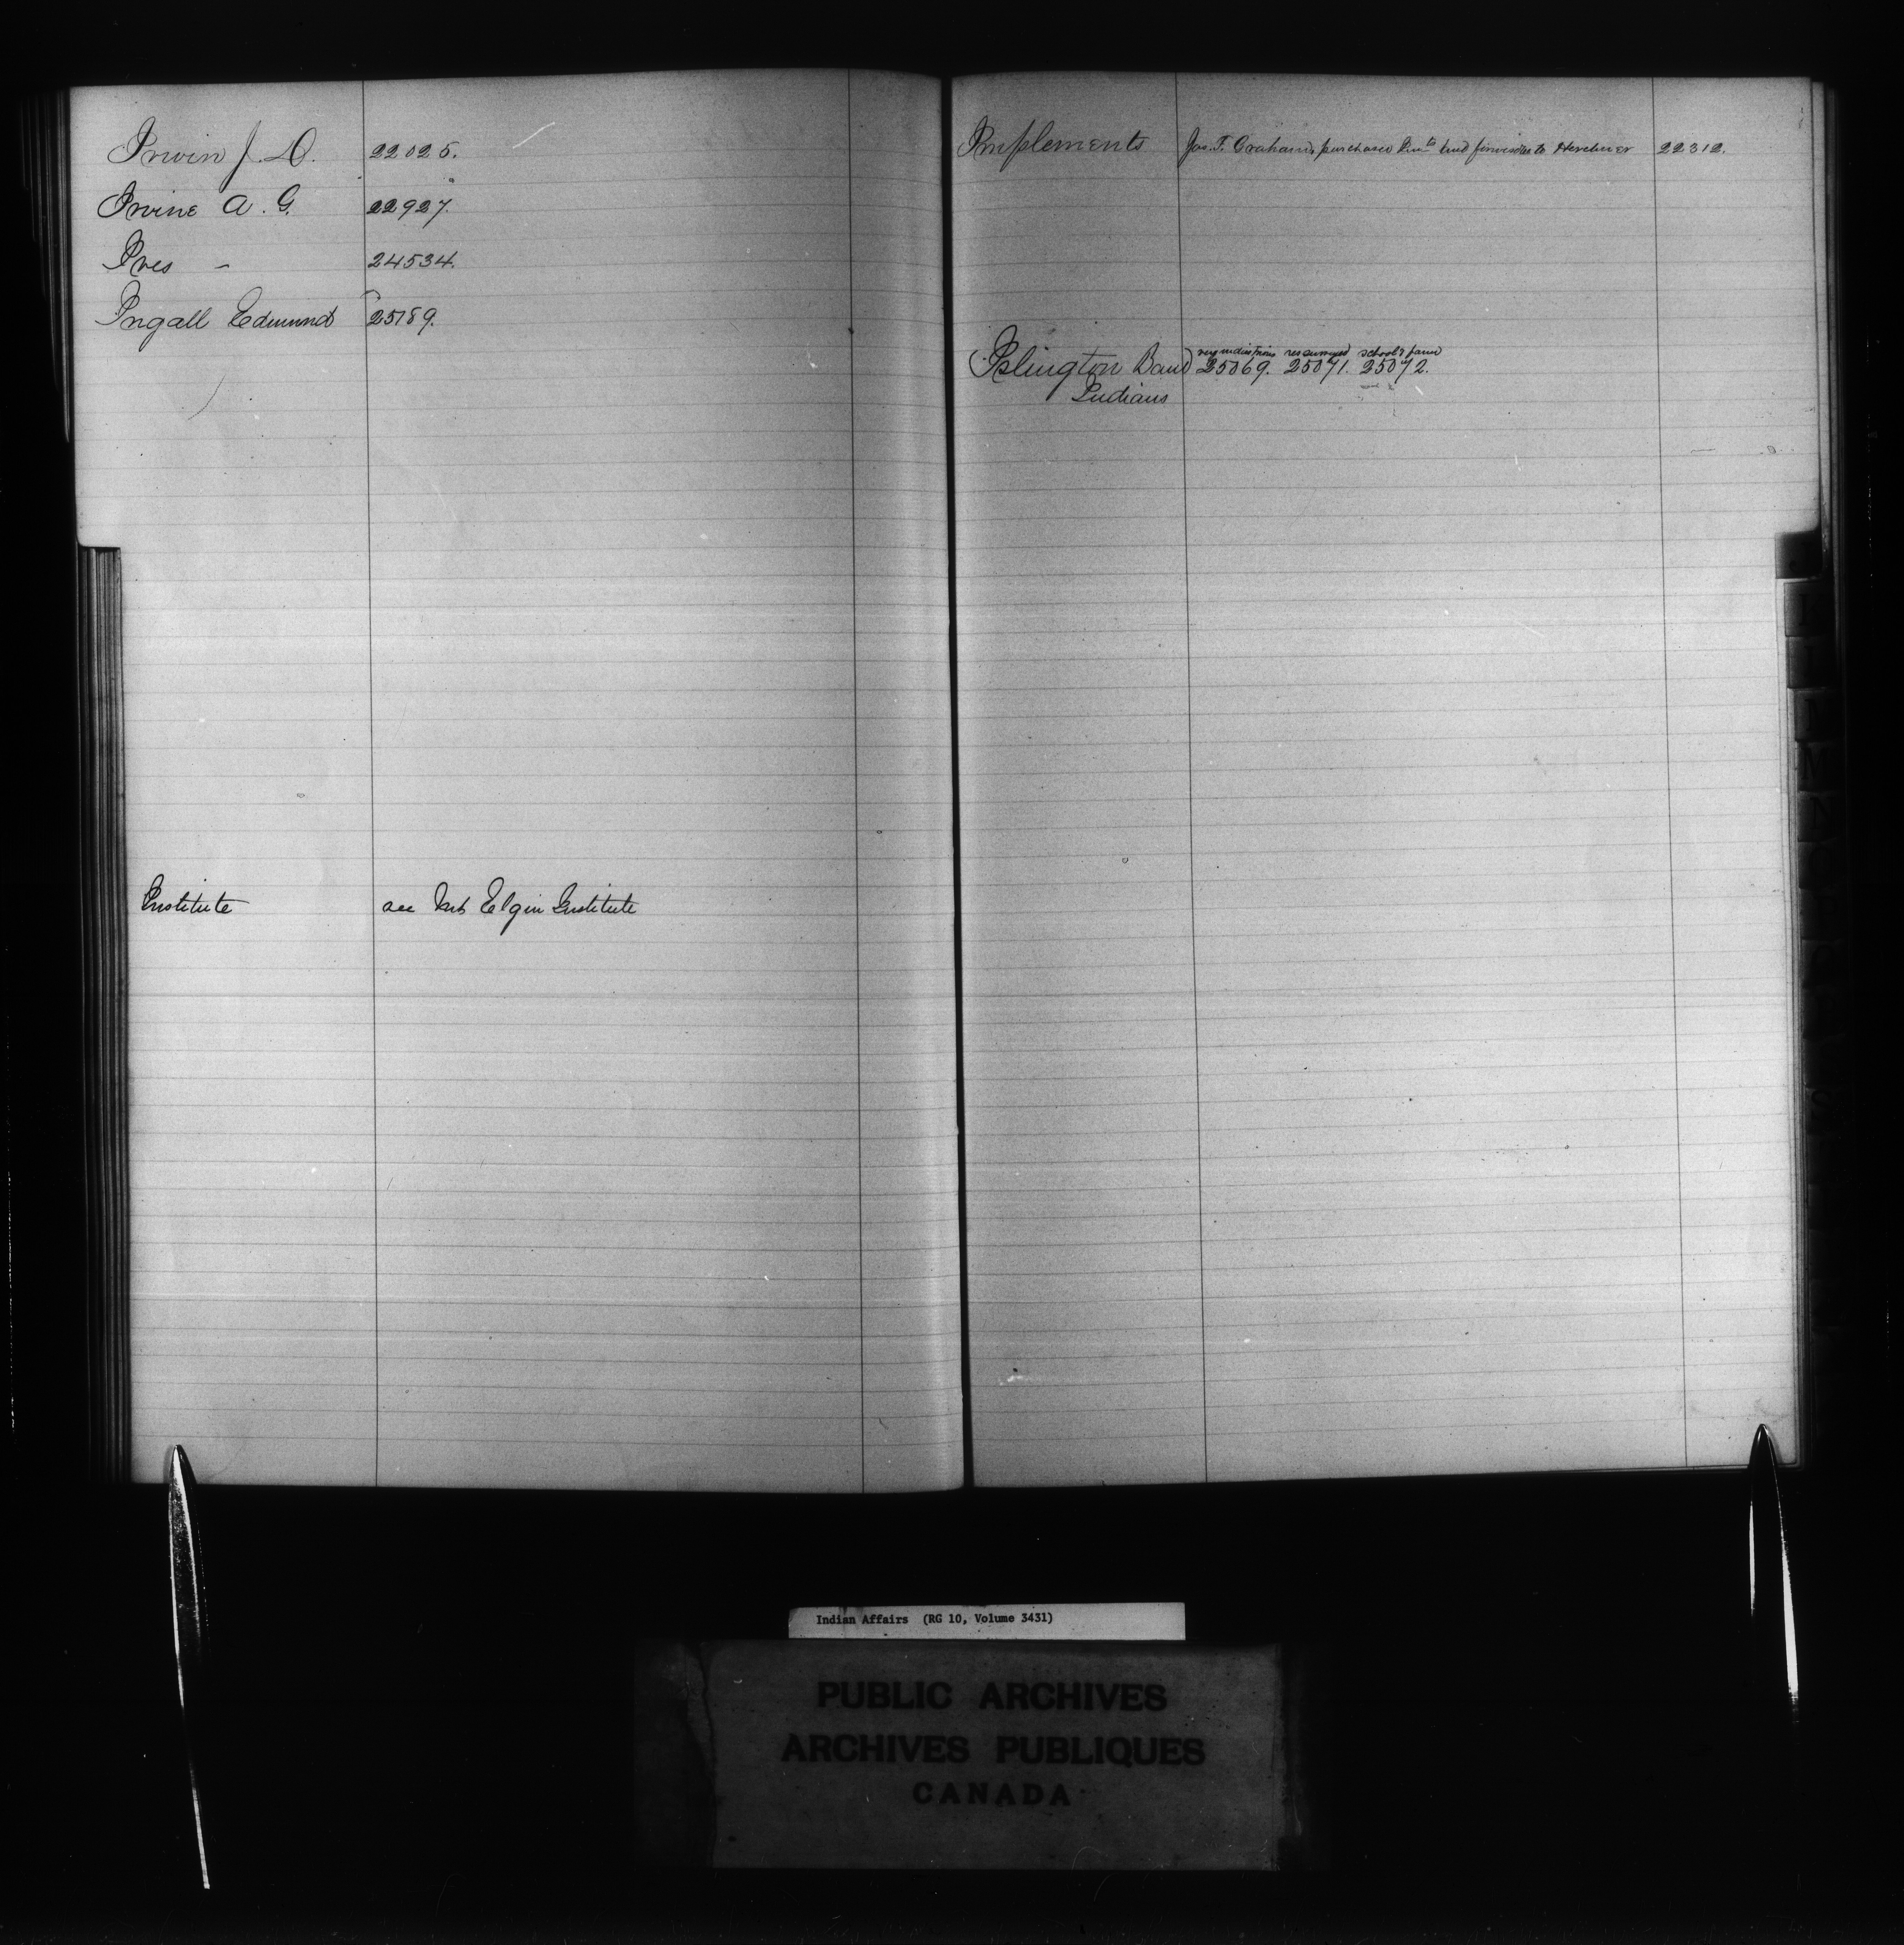 Irwin J. D. 22025.
Irvine A. G. 22927.
Ives – 24534.
Ingall Edmund 25189.
Institute see Mt Elgin Institute
Implements Jas. F. Graham, purchased and to Herchmer 22312.
very industrious res surveyed school & farm
(Islington Band) 25069. 25071. 25072.
Indians
L
M
N
Indian Affairs (RG 10, Volume 3431)
PUBLIC ARCHIVES
ARCHIVES PUBLIQUES
CANADA